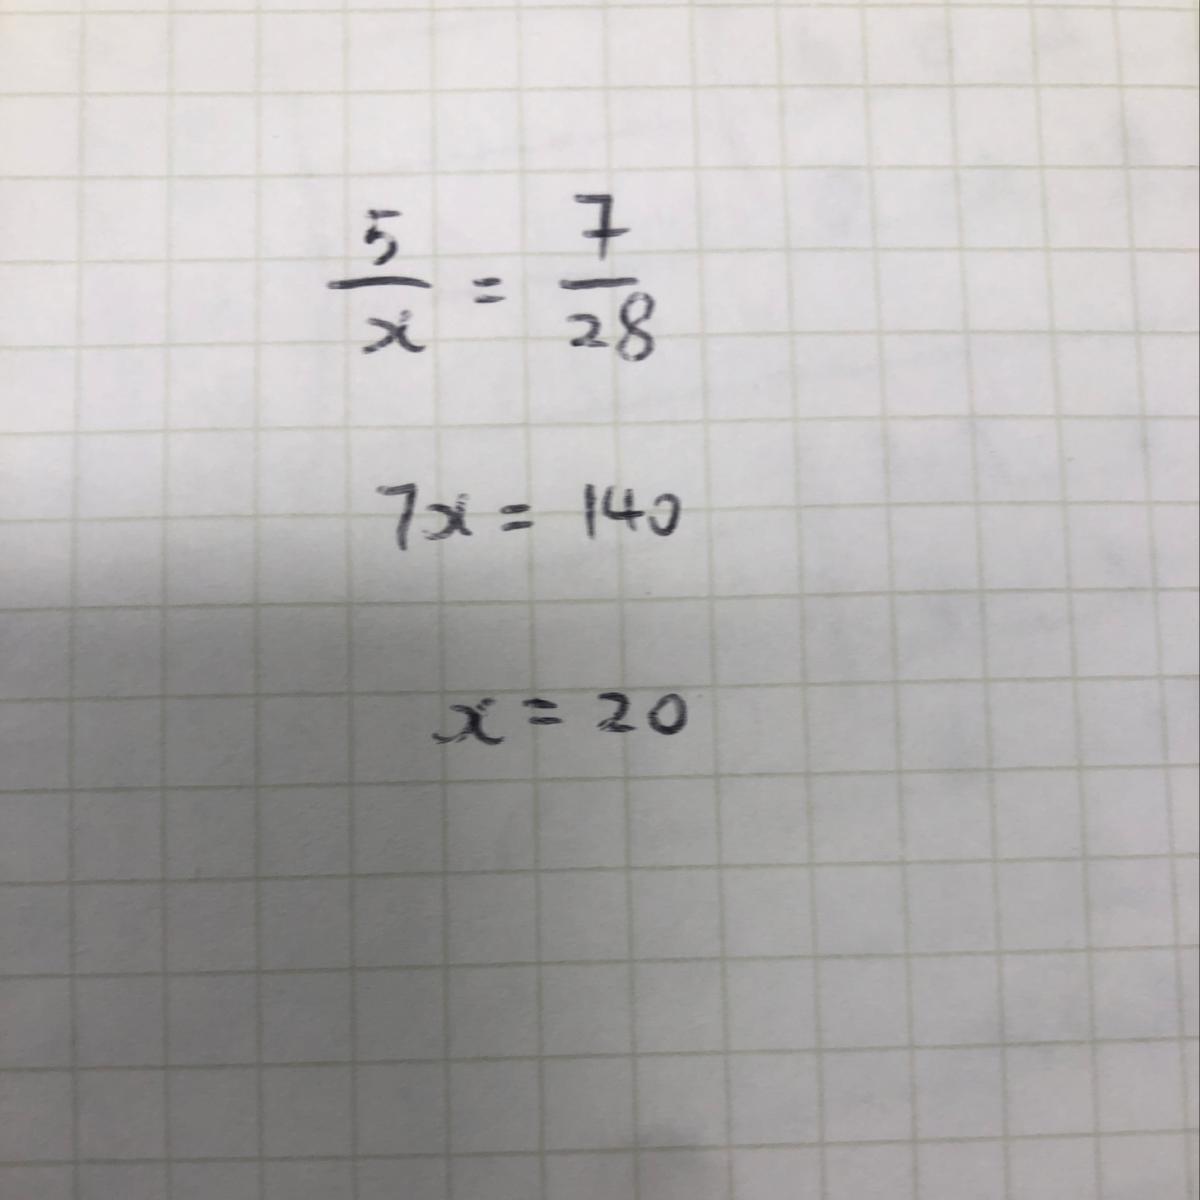 5/x = 7/28
7x = 140
x = 20